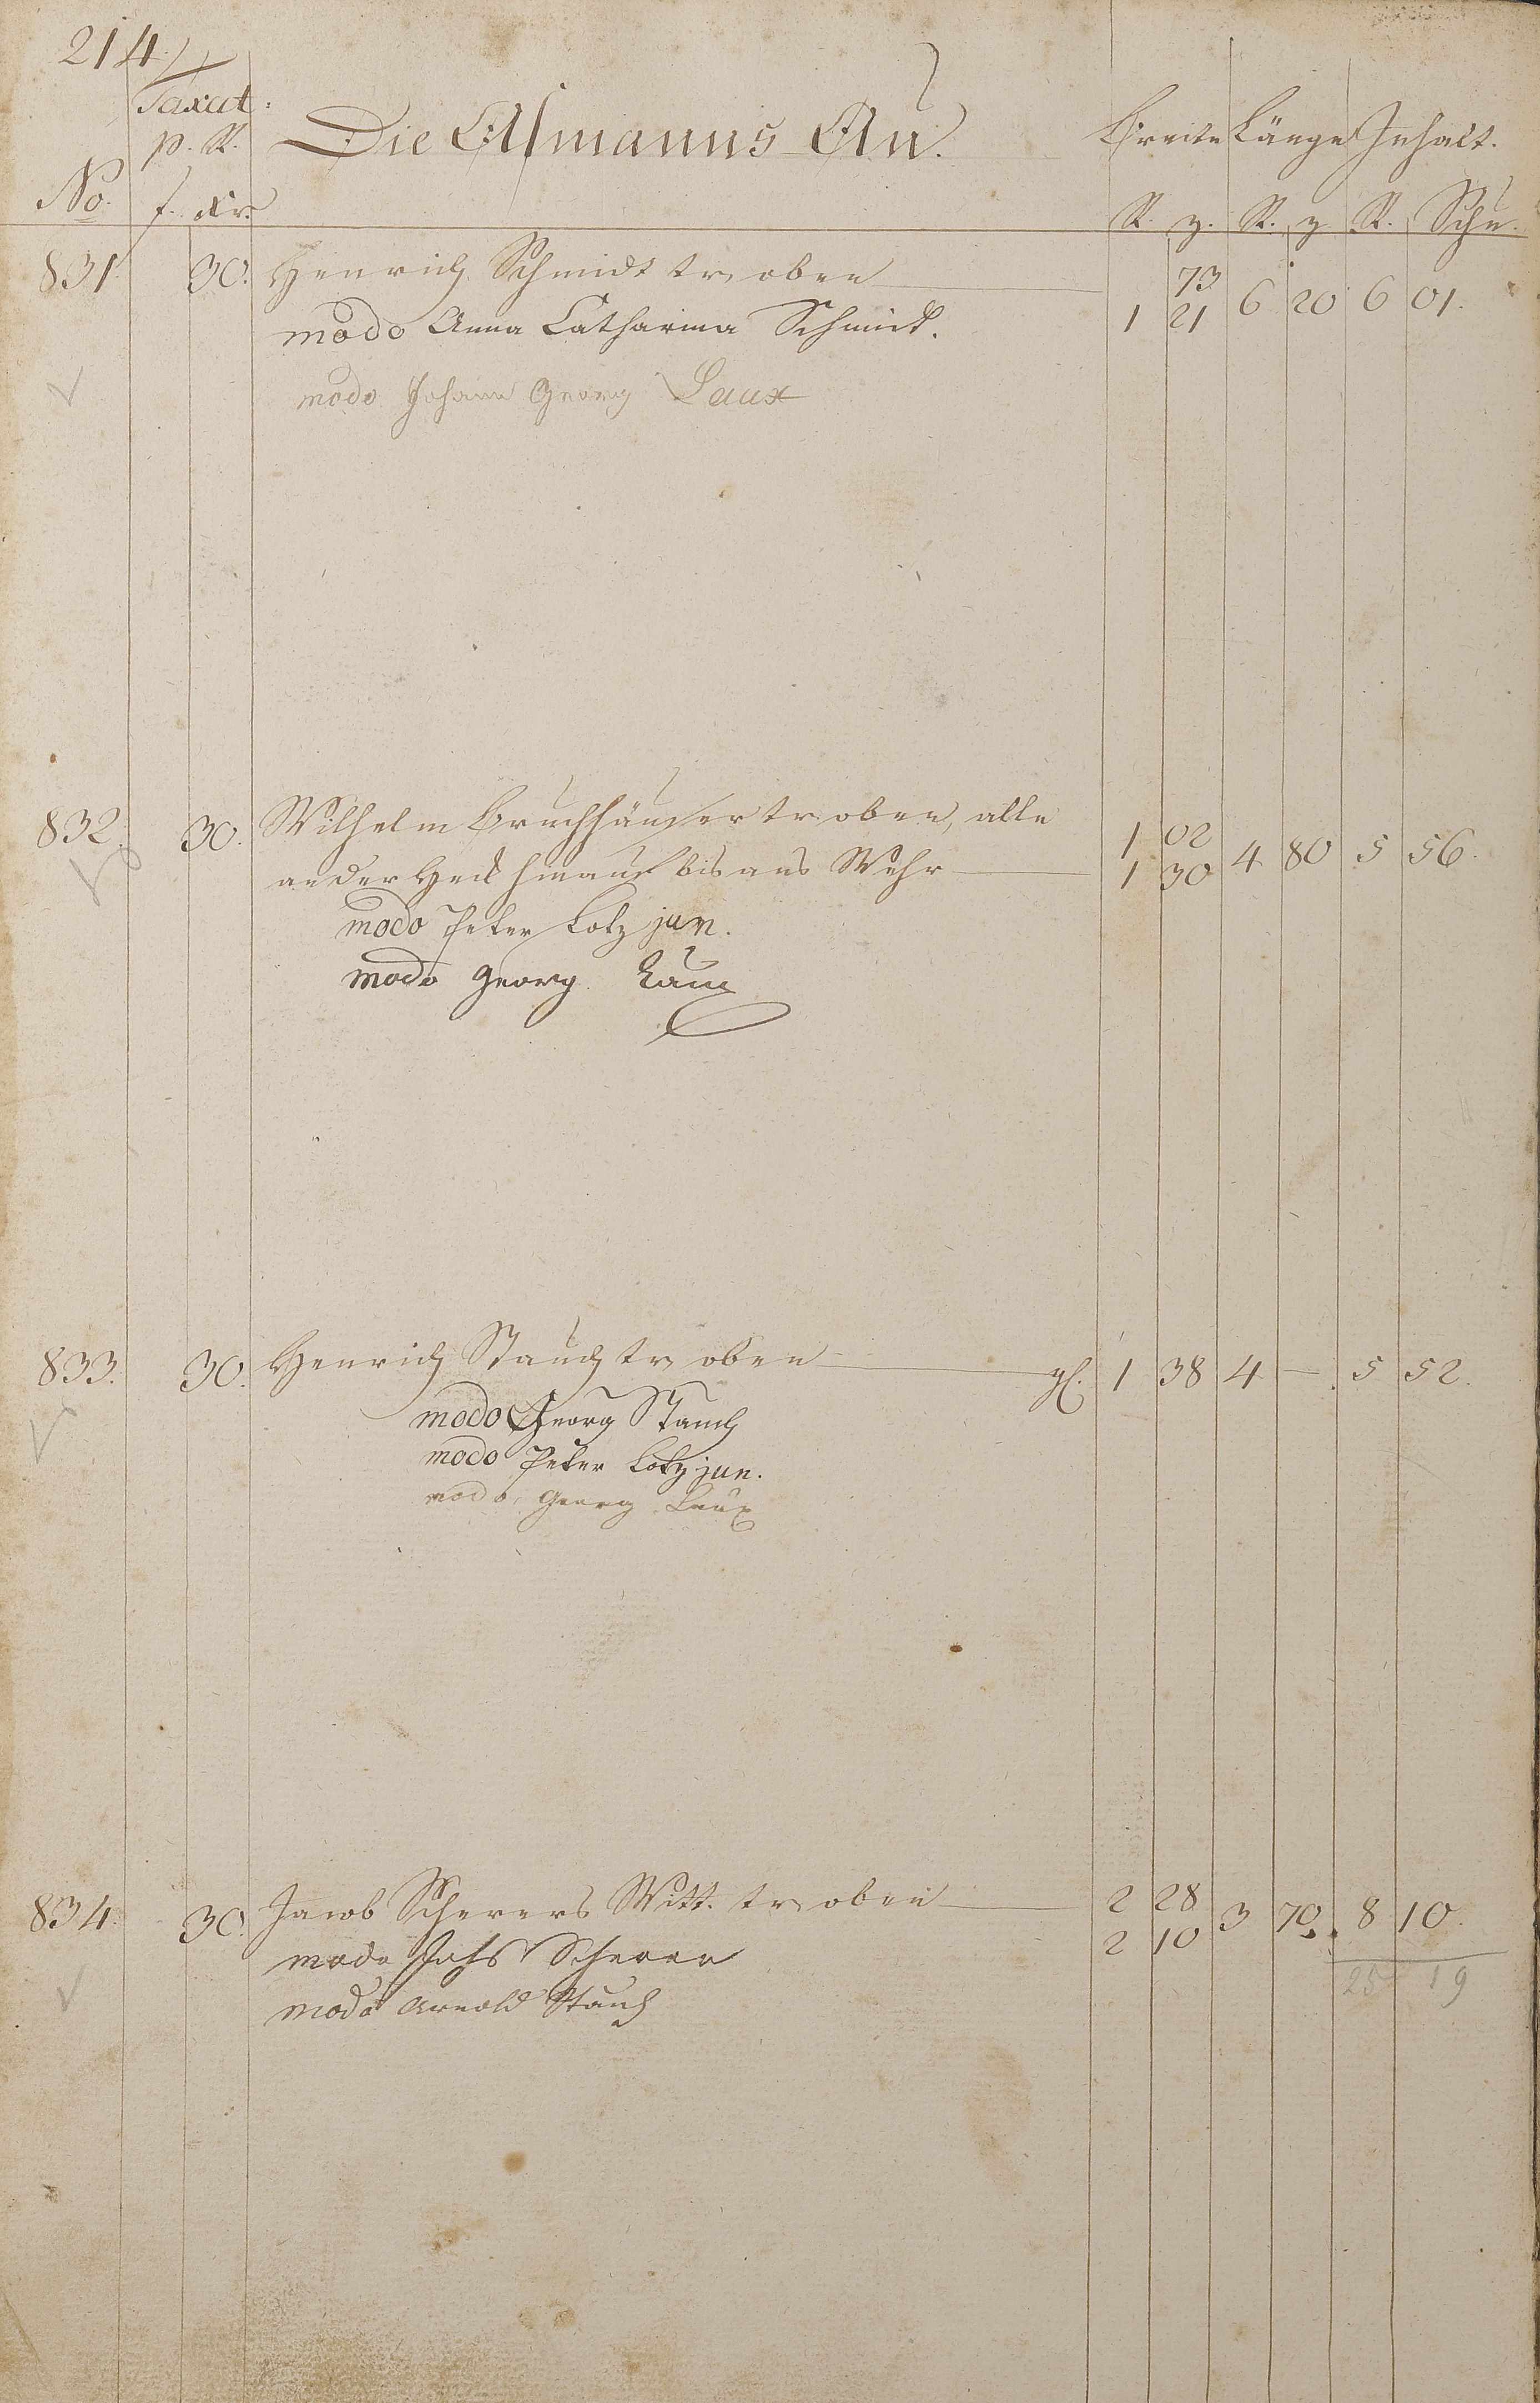 214
Taxat.
p. R.
Die Asmanns Au.
Breite Länge Inhalt.
No. f. Xr.
R. z. R. z R. Schu.
831. 30. Henrich Schmidt tr. oben
73
1 21 6 20 6 01.
modo Anna Catharina Schmidt.
modo Johann Georg Laux
832. 30. Wilhelm Bruchhäußer tr. oben, alle
1 02
1 30 4 80 5 56.
an der Heck hinauf bis ans Wehr
modo Peter Lotz jun.
modo Georg Laux
833. 30. Henrich Stauch tr. oben gl. 1 38 4 — 5 52.
modo Georg Stauch
modo Peter Lotz jun.
modo Georg Laux
834. 30. Jacob Scherers Witt. tr. oben
2 28
2 10 3 70. 8 10.
modo Johs Scherer
25 19
modo Arnold Stauch